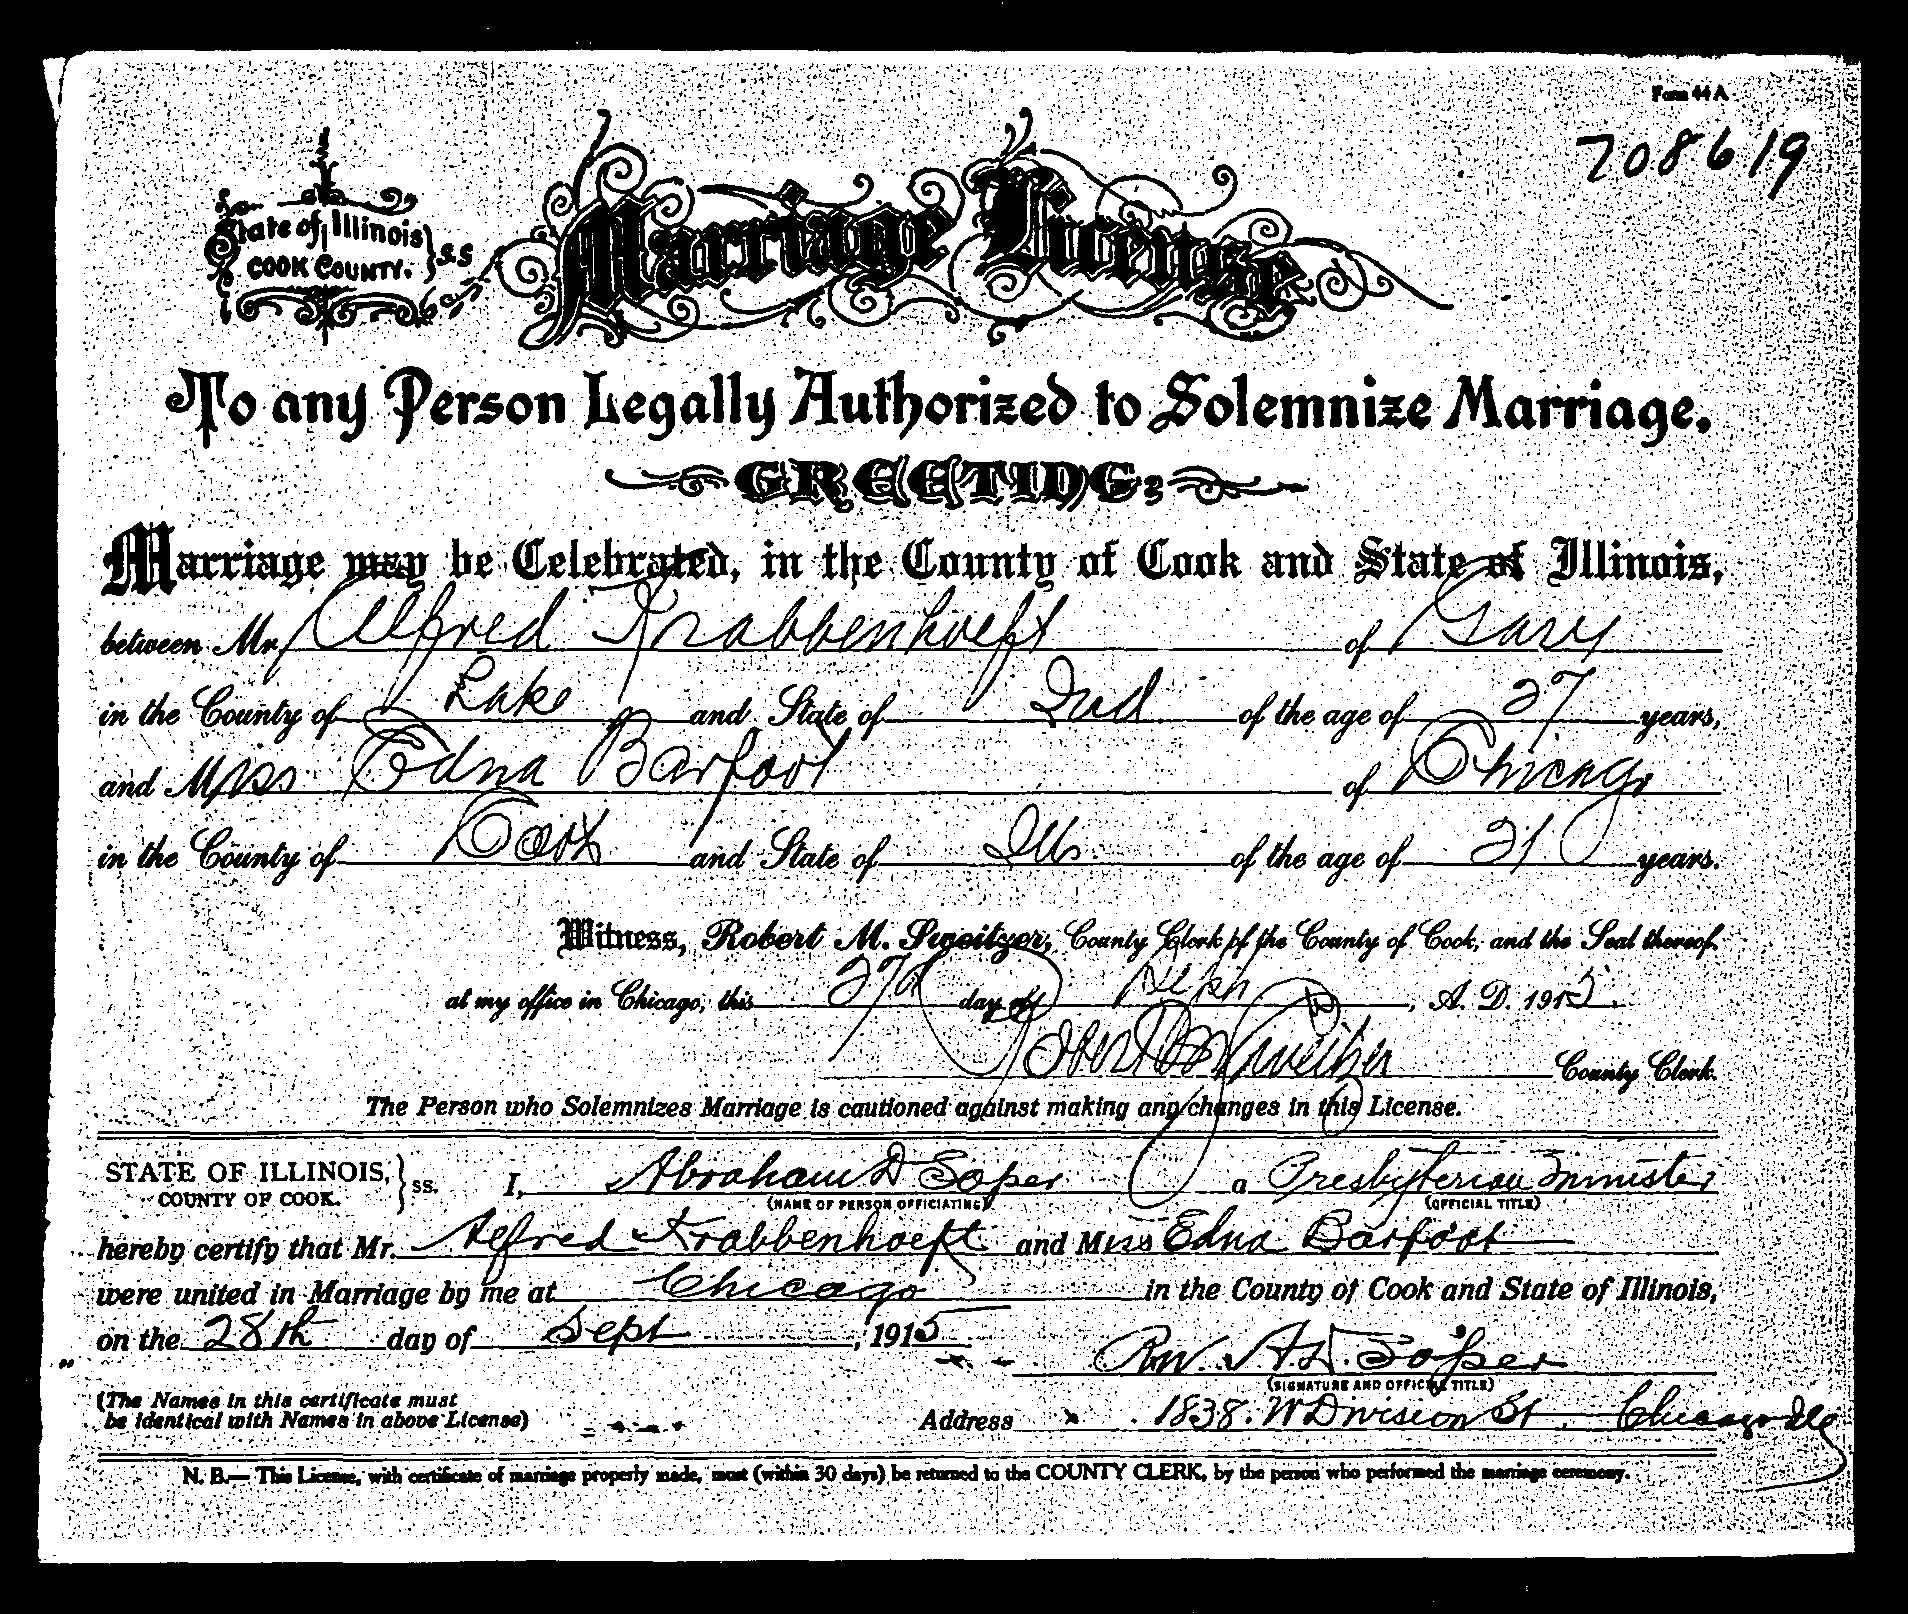 Form 44 A
708619
State of Illinois } S.S
COOK COUNTY.
Marriage License
To any Person Legally Authorized to Solemnize Marriage.
GREETING:
Marriage may be Celebrated, in the County of Cook and State of Illinois,
between Mr. Alfred Krabbenhoeft of Gary
in the County of Lake and State of Ind of the age of 27 years,
and Miss Edna Barfoot of Chicago
in the County of Cook and State of Ills of the age of 21 years.
Witness, Robert M. Sweitzer, County Clerk of the County of Cook, and the Seal thereof.
at my office in Chicago, this 27th day of Sept, A. D. 1915.
Robert M Sweitzer County Clerk.
The Person who Solemnizes Marriage is cautioned against making any changes in this License.
STATE OF ILLINOIS, } ss. I, Abraham D Soper a Presbyterian Minister
COUNTY OF COOK. (NAME OF PERSON OFFICIATING) (OFFICIAL TITLE)
hereby certify that Mr. Alfred Krabbenhoeft and Miss Edna Barfoot
were united in Marriage by me at Chicago in the County of Cook and State of Illinois,
on the 28th day of Sept, 1915
Rev. A. D. Soper
(SIGNATURE AND OFFICIAL TITLE)
(The Names in this certificate must
be identical with Names in above License)
Address 1838. W Division St, Chicago Ills
N. B.— This License, with certificate of marriage properly made, must (within 30 days) be returned to the COUNTY CLERK, by the person who performed the marriage ceremony.